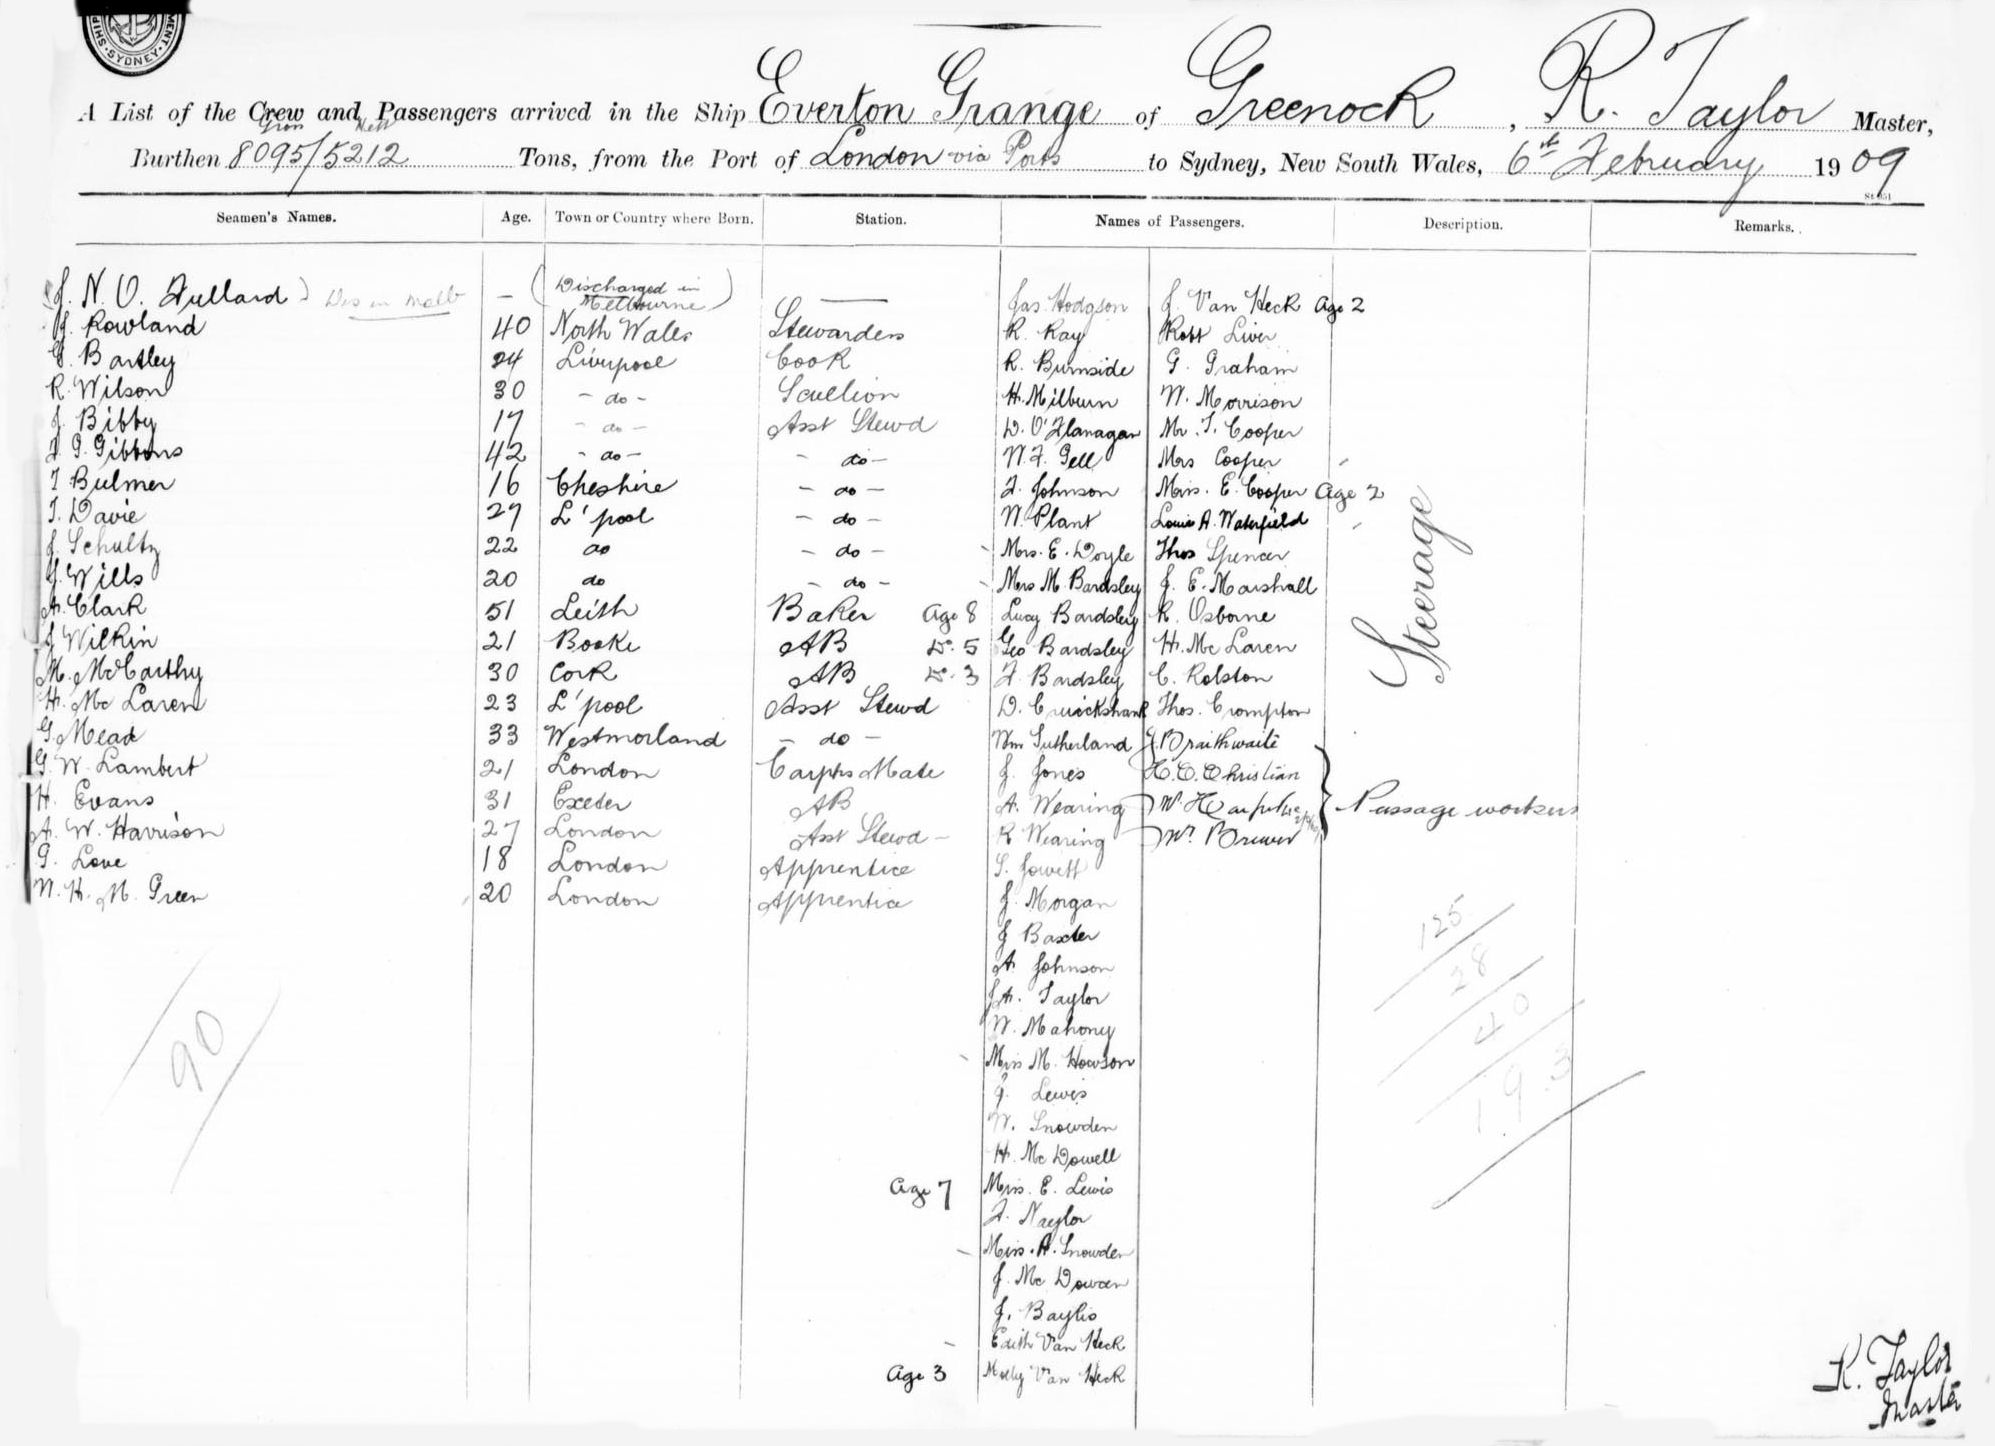 SHIP MENT · SYDNEY ·
A List of the Crew and Passengers arrived in the Ship Everton Grange of Greenock, R. Taylor Master,
Gross Nett
Burthen 8095/5212 Tons, from the Port of London via Ports to Sydney, New South Wales, 6th February 1909
Seamen's Names. Age. Town or Country where Born. Station. Names of Passengers. Description. Remarks.
J. N. O. Fullard Dis in Melb — (Discharged in Melbourne) — Jas Hodgson J. Van Heck Age 2
J. Rowland 40 North Wales Stewardess R. Ray Robt Liver
G. Bartley 24 Liverpool Cook R. Burnside G. Graham
R. Wilson 30 - do - Scullion H. Milburn W. Morrison
J. Bibby 17 - do - Asst Stewd D. O'Flanagan Mr. T. Cooper
J. G. Gibbons 42 - do - - do - W. F. Gell Mrs Cooper
T Bulmer 16 Cheshire - do - F. Johnson Miss. E. Cooper Age 2
T. Davie 27 L'pool - do - W. Plant Louis A. Waterfield
J. Schultz 22 do - do - Mrs. E. Doyle Thos Spencer
J. Wills 20 do - do - Mrs M. Bardsley J. E. Marshall
A. Clark 51 Leith Baker Age 8 Lucy Bardsley R. Osborne
J Wilkin 21 AB Do. 5 Geo Bardsley H. Mc Laren
M. McCarthy 30 Cork AB Do. 3 F. Bardsley C. Rolston
H. Mc Laren 23 L'pool Asst Stewd D. Cruickshank Thos. Crompton
G. Mead 33 Westmorland - do - Wm Sutherland J. Braithwaite
G. W. Lambert 21 London Carptrs Mate J. Jones H. O. Christian
H. Evans 31 Exeter AB A. Wearing W. Passage workers
A. W. Harrison 27 London Asst Stewd - R Wearing Mr. Brewer
G. Love 18 London Apprentice S. Jowett
W. H. M. Green 20 London Apprentice J. Morgan
J Baxter
A. Johnson
J A. Taylor
W. Mahony
Miss M. Howson
J. Lewis
W. Snowden
H. Mc Dowell
Age 7 Miss. E. Lewis
F. Naylor
Miss. A. Snowden
J. Mc Dowan
J. Baylis
Edith Van Heck
Age 3 Molly Van Heck
Steerage
90
125
28
40
193
R. Taylor
Master